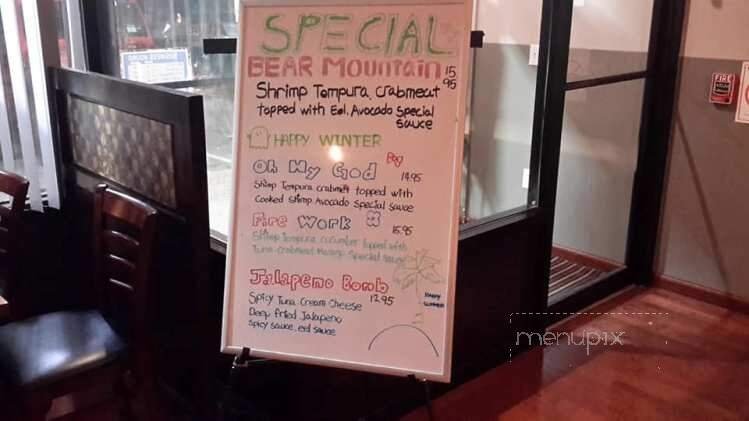 SPECIAL
BEAR MOUNTAIN 15 95
Shrimp Tempura, crabmeat
topped with Eel, Avocado Special
sauce
HAPPY WINTER
Oh My God 14.95
Shrimp Tempura crabmeat topped with
Cooked Shrimp Avocado Special sauce
Fire Work 15.95
Shrimp Tempura, cucumber topped with
Tuna crabmeat Mango Special sauce
Jalapeno Bomb 12.95
Spicy Tuna, Cream Cheese
Deep fried Jalapeno
Spicy sauce, eel sauce
HAPPY
SUMMER
FIRE
menupix